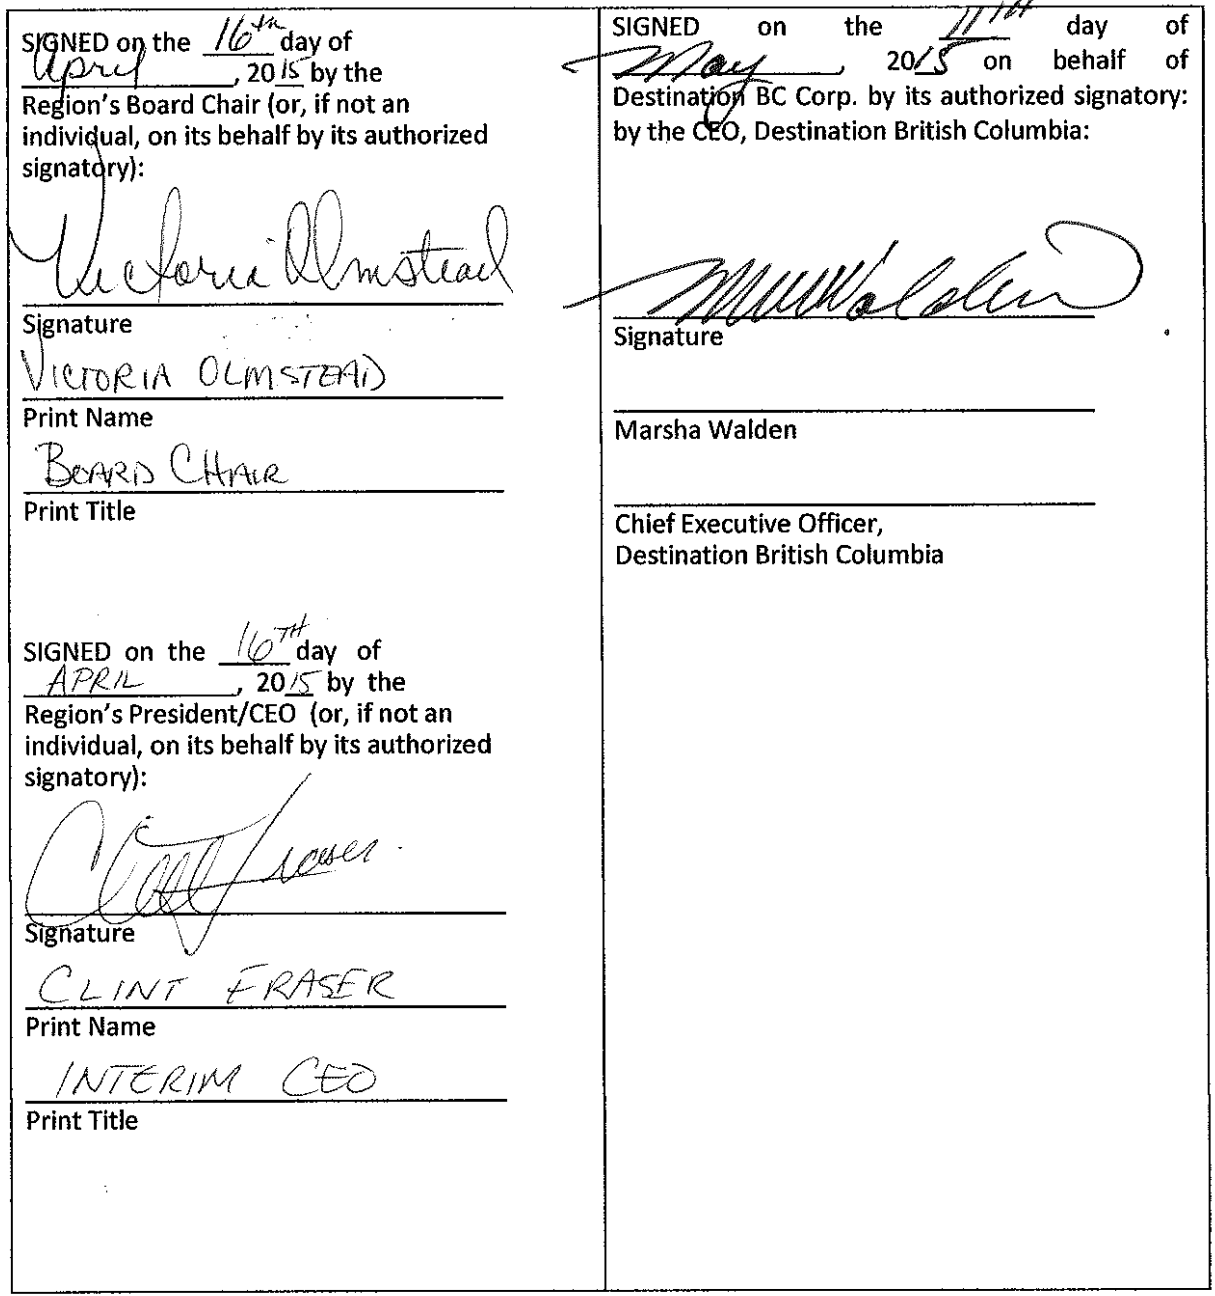 SIGNED on the 16th day of
April, 2015 by the
Region's Board Chair (or, if not an
individual, on its behalf by its authorized
signatory):
Victoria Olmstead
Signature
VICTORIA OLMSTEAD
Print Name
BOARD CHAIR
Print Title
SIGNED on the 16TH day of
APRIL, 2015 by the
Region's President/CEO (or, if not an
individual, on its behalf by its authorized
signatory):
Clint Fraser
Signature
CLINT FRASER
Print Name
INTERIM CEO
Print Title
SIGNED on the 11TH day of
May, 2015 on behalf of
Destination BC Corp. by its authorized signatory:
by the CEO, Destination British Columbia:
MWalden
Signature
Marsha Walden
Chief Executive Officer,
Destination British Columbia